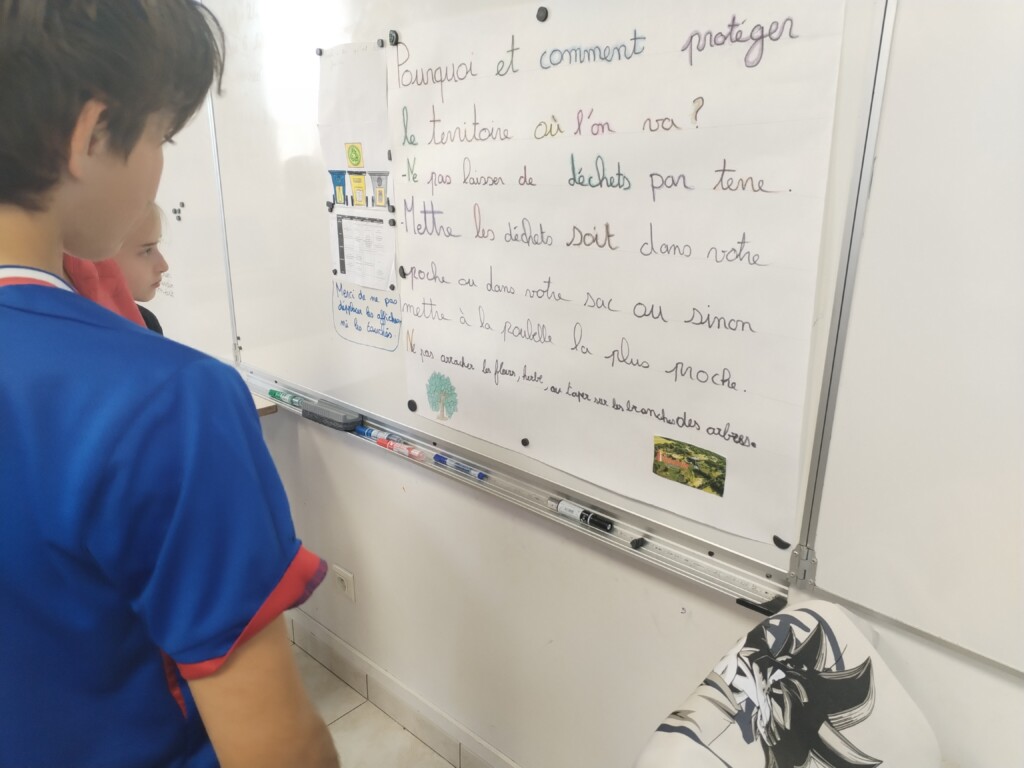 Pourquoi et comment protéger
le territoire où l'on va ?
-Ne pas laisser de déchets par terre.
-Mettre les déchets soit dans votre
poche ou dans votre sac ou sinon
mettre à la poubelle la plus proche.
Ne pas arracher les fleurs, herbe, ou taper sur les branches des arbres.
Merci de ne pas
déplacer les affiches
ni les